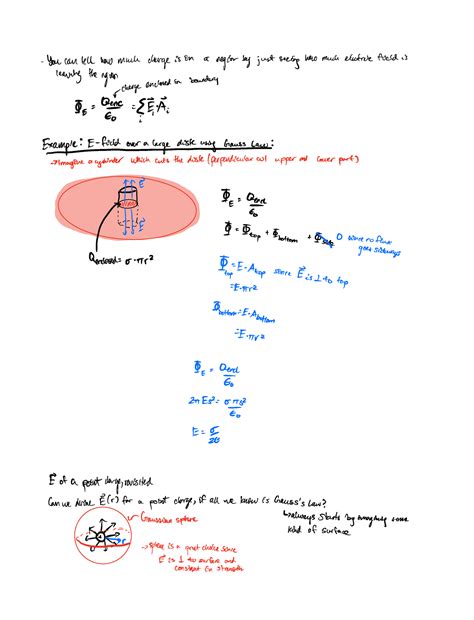 - You can tell how much charge is in a region by just seeing how much electric field is
leaving the region
charge enclosed in boundary
Φ_E = Q_enc/ε_0 = Σ_i E⃗_i · A⃗_i
Example: E-field over a large disk using Gauss Law:
→ Imagine a cylinder which cuts the disk (perpendicular w/ upper and lower part)
E⃗
E⃗
Q_enclosed = σ·πr²
Φ_E = Q_enc/ε_0
Φ = Φ_top + Φ_bottom + Φ_side → 0 since no flux
goes sideways
Φ_top = E·A_top since E⃗ is ⊥ to top
= E·πr²
Φ_bottom = E·A_bottom
= E·πr²
Φ_E = Q_encl/ε_0
2πEs² = σπs²/ε_0
E = σ/2ε
E⃗ of a point charge, revisited
Can we derive E⃗(r) for a point charge, if all we know is Gauss's Law?
↳ always starts by imagining some
kind of surface
Gaussian sphere
→ sphere is a great choice since
E⃗ is ⊥ to surface and
constant in strength